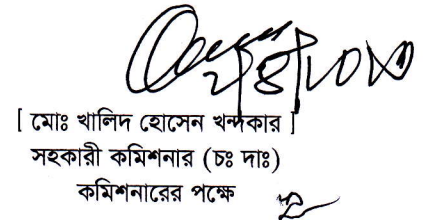 [ মোঃ খালিদ হোসেন খন্দকার ]
সহকারী কমিশনার (চঃ দাঃ)
কমিশনারের পক্ষে